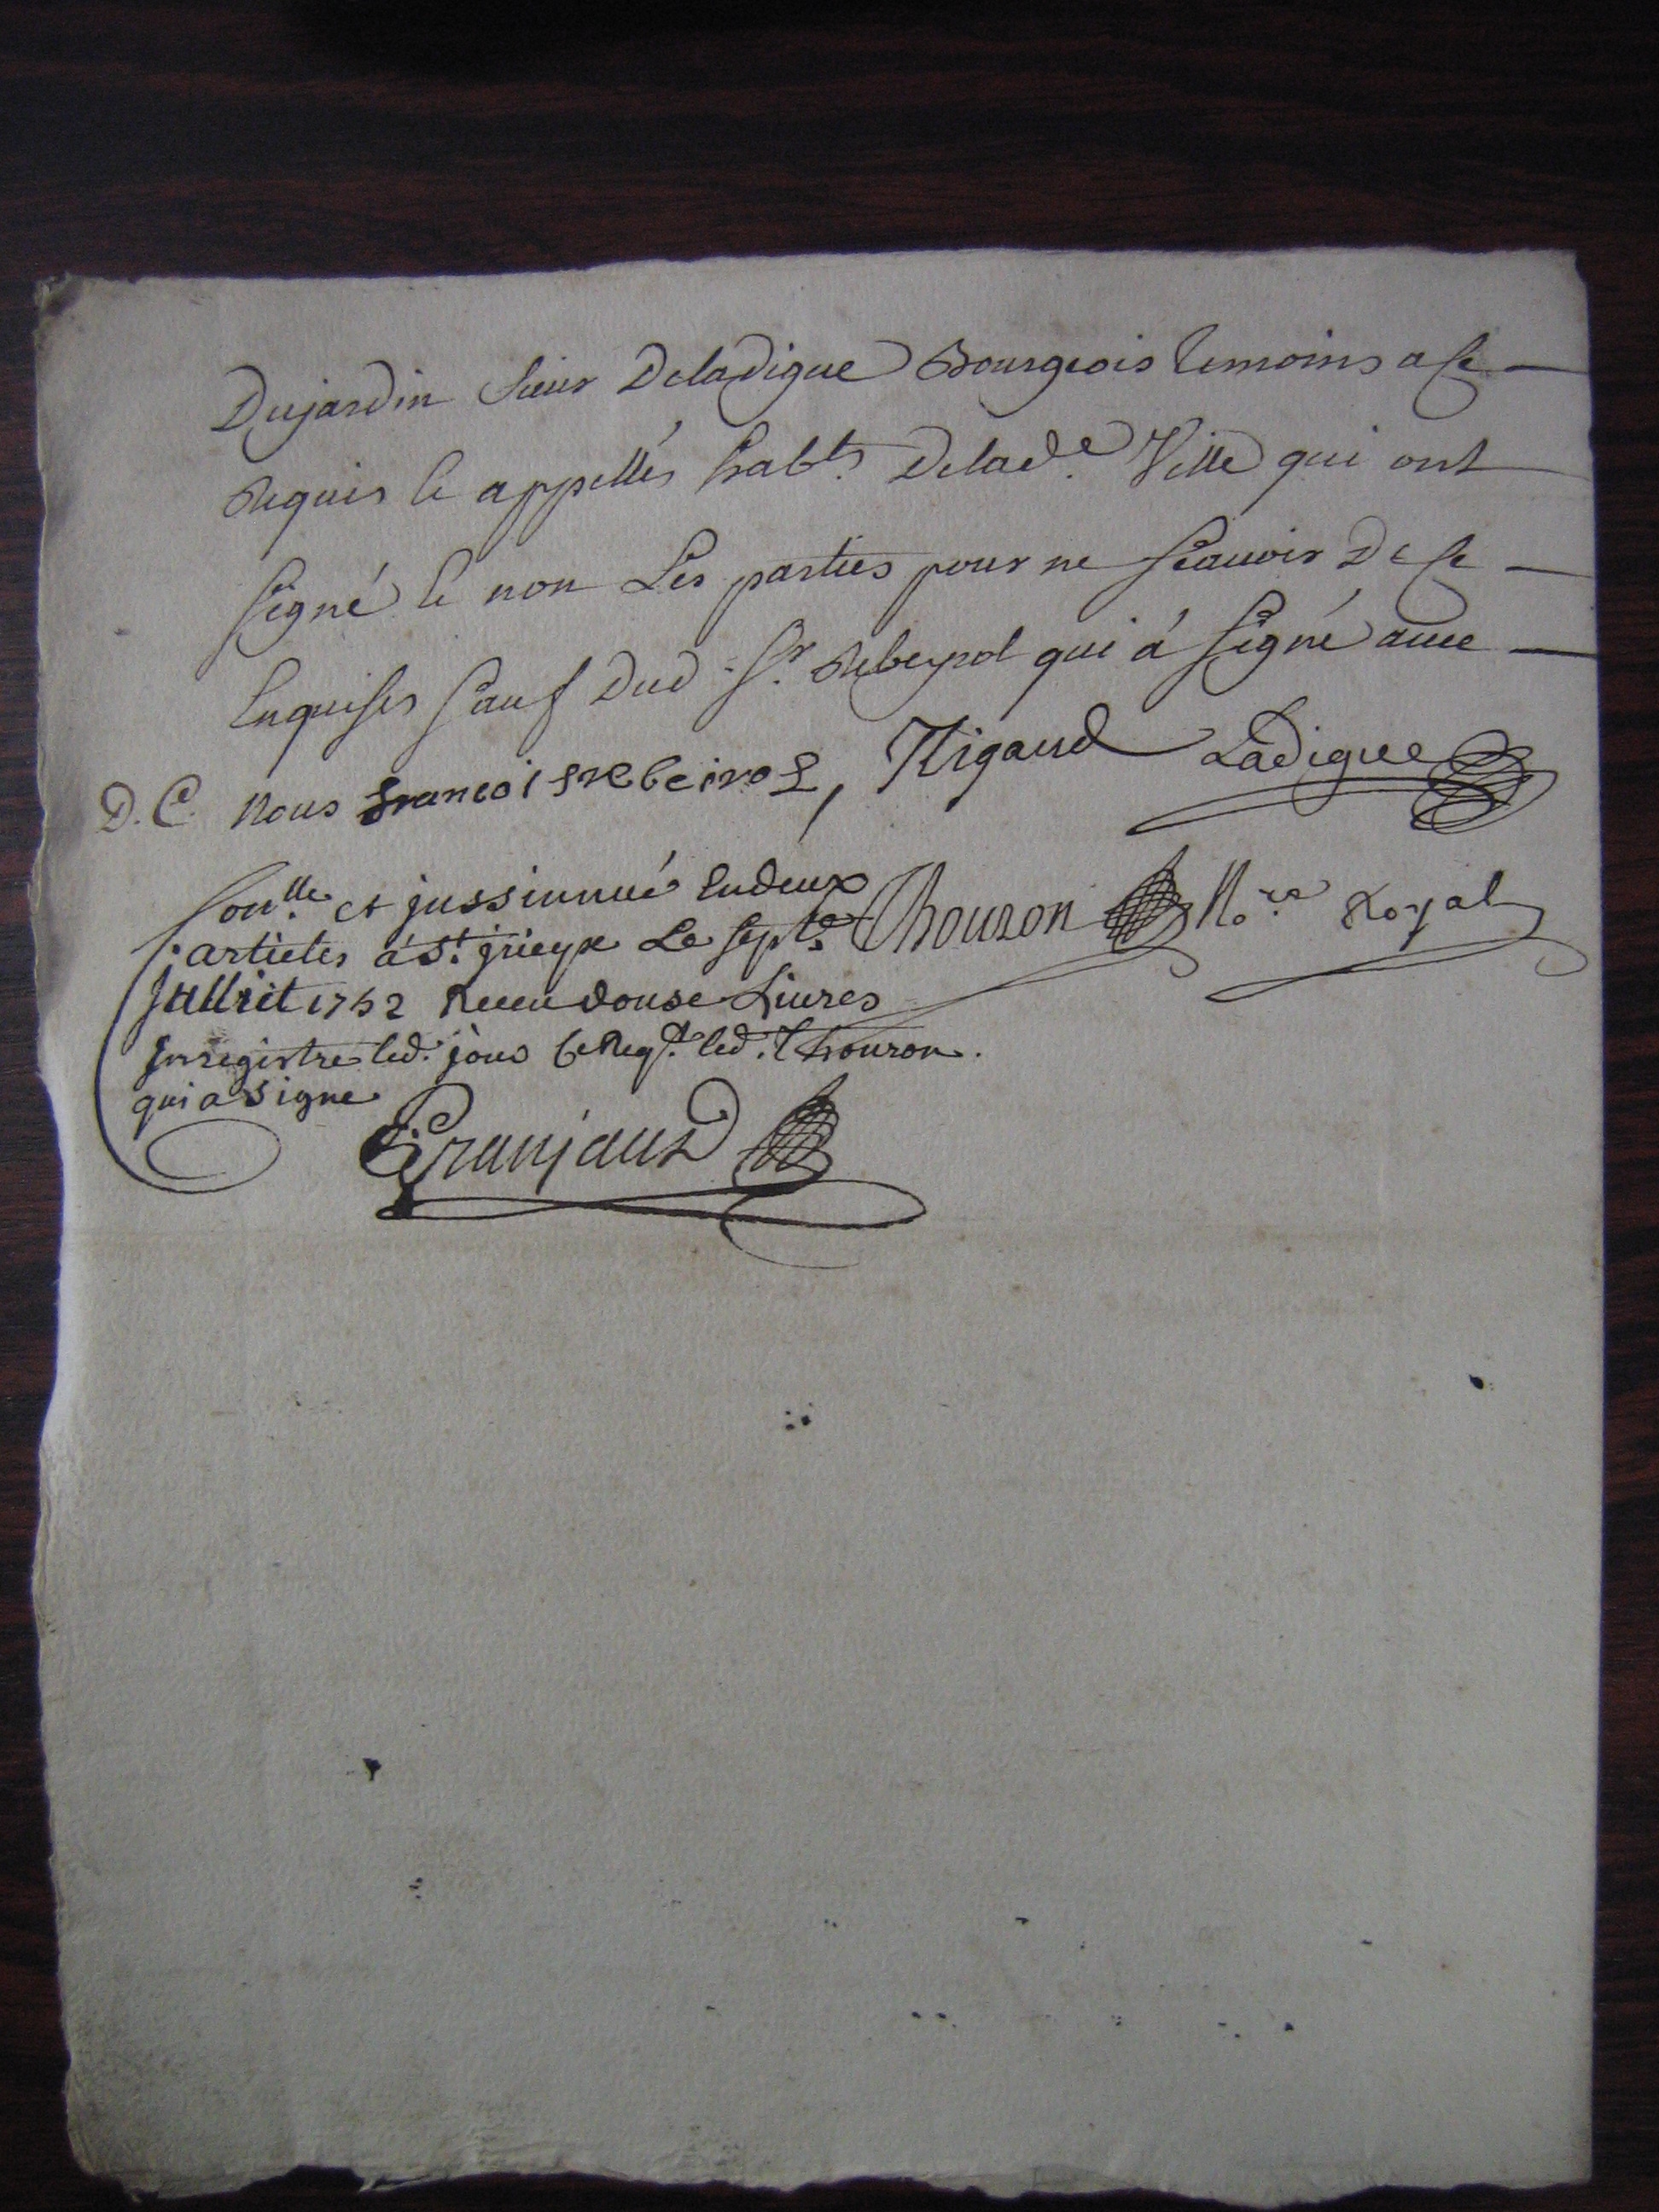 Dujardin sieur Deladigue Bourgeois temoins a ce
Requis et appellés habts. Delade. Ville qui ont
signé et non Les parties pour ne sçauoir De ce
Enquises sauf Dud. Sr. Rebeyrol qui á signé auec
D. C. Nous francois rebeirol, Rigaud Ladigue
Conlle. et jnssinnué Endeux
articles a St. jrieyx Le sept. Thouron No.re Royal
Juillict 1752 Receu douse Liures
Enregistre led. jour et Reqt. led. Thouron.
qui a signe
Granjaud